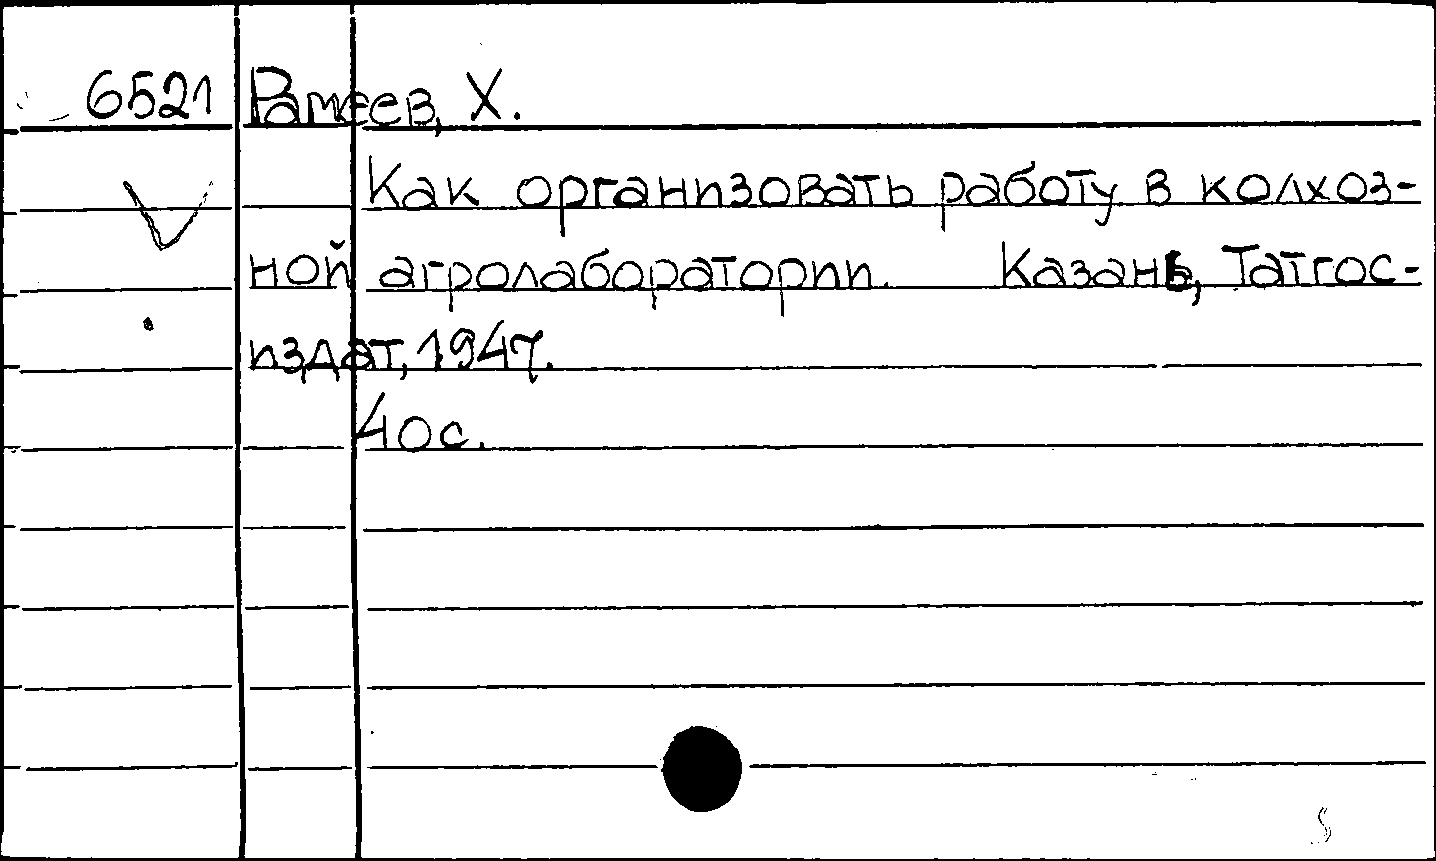 6521 Рамеев, Х.
Как организовать работу в колхоз-
ной агролаборатории. Казань, Татгос-
издат, 1947.
40с.